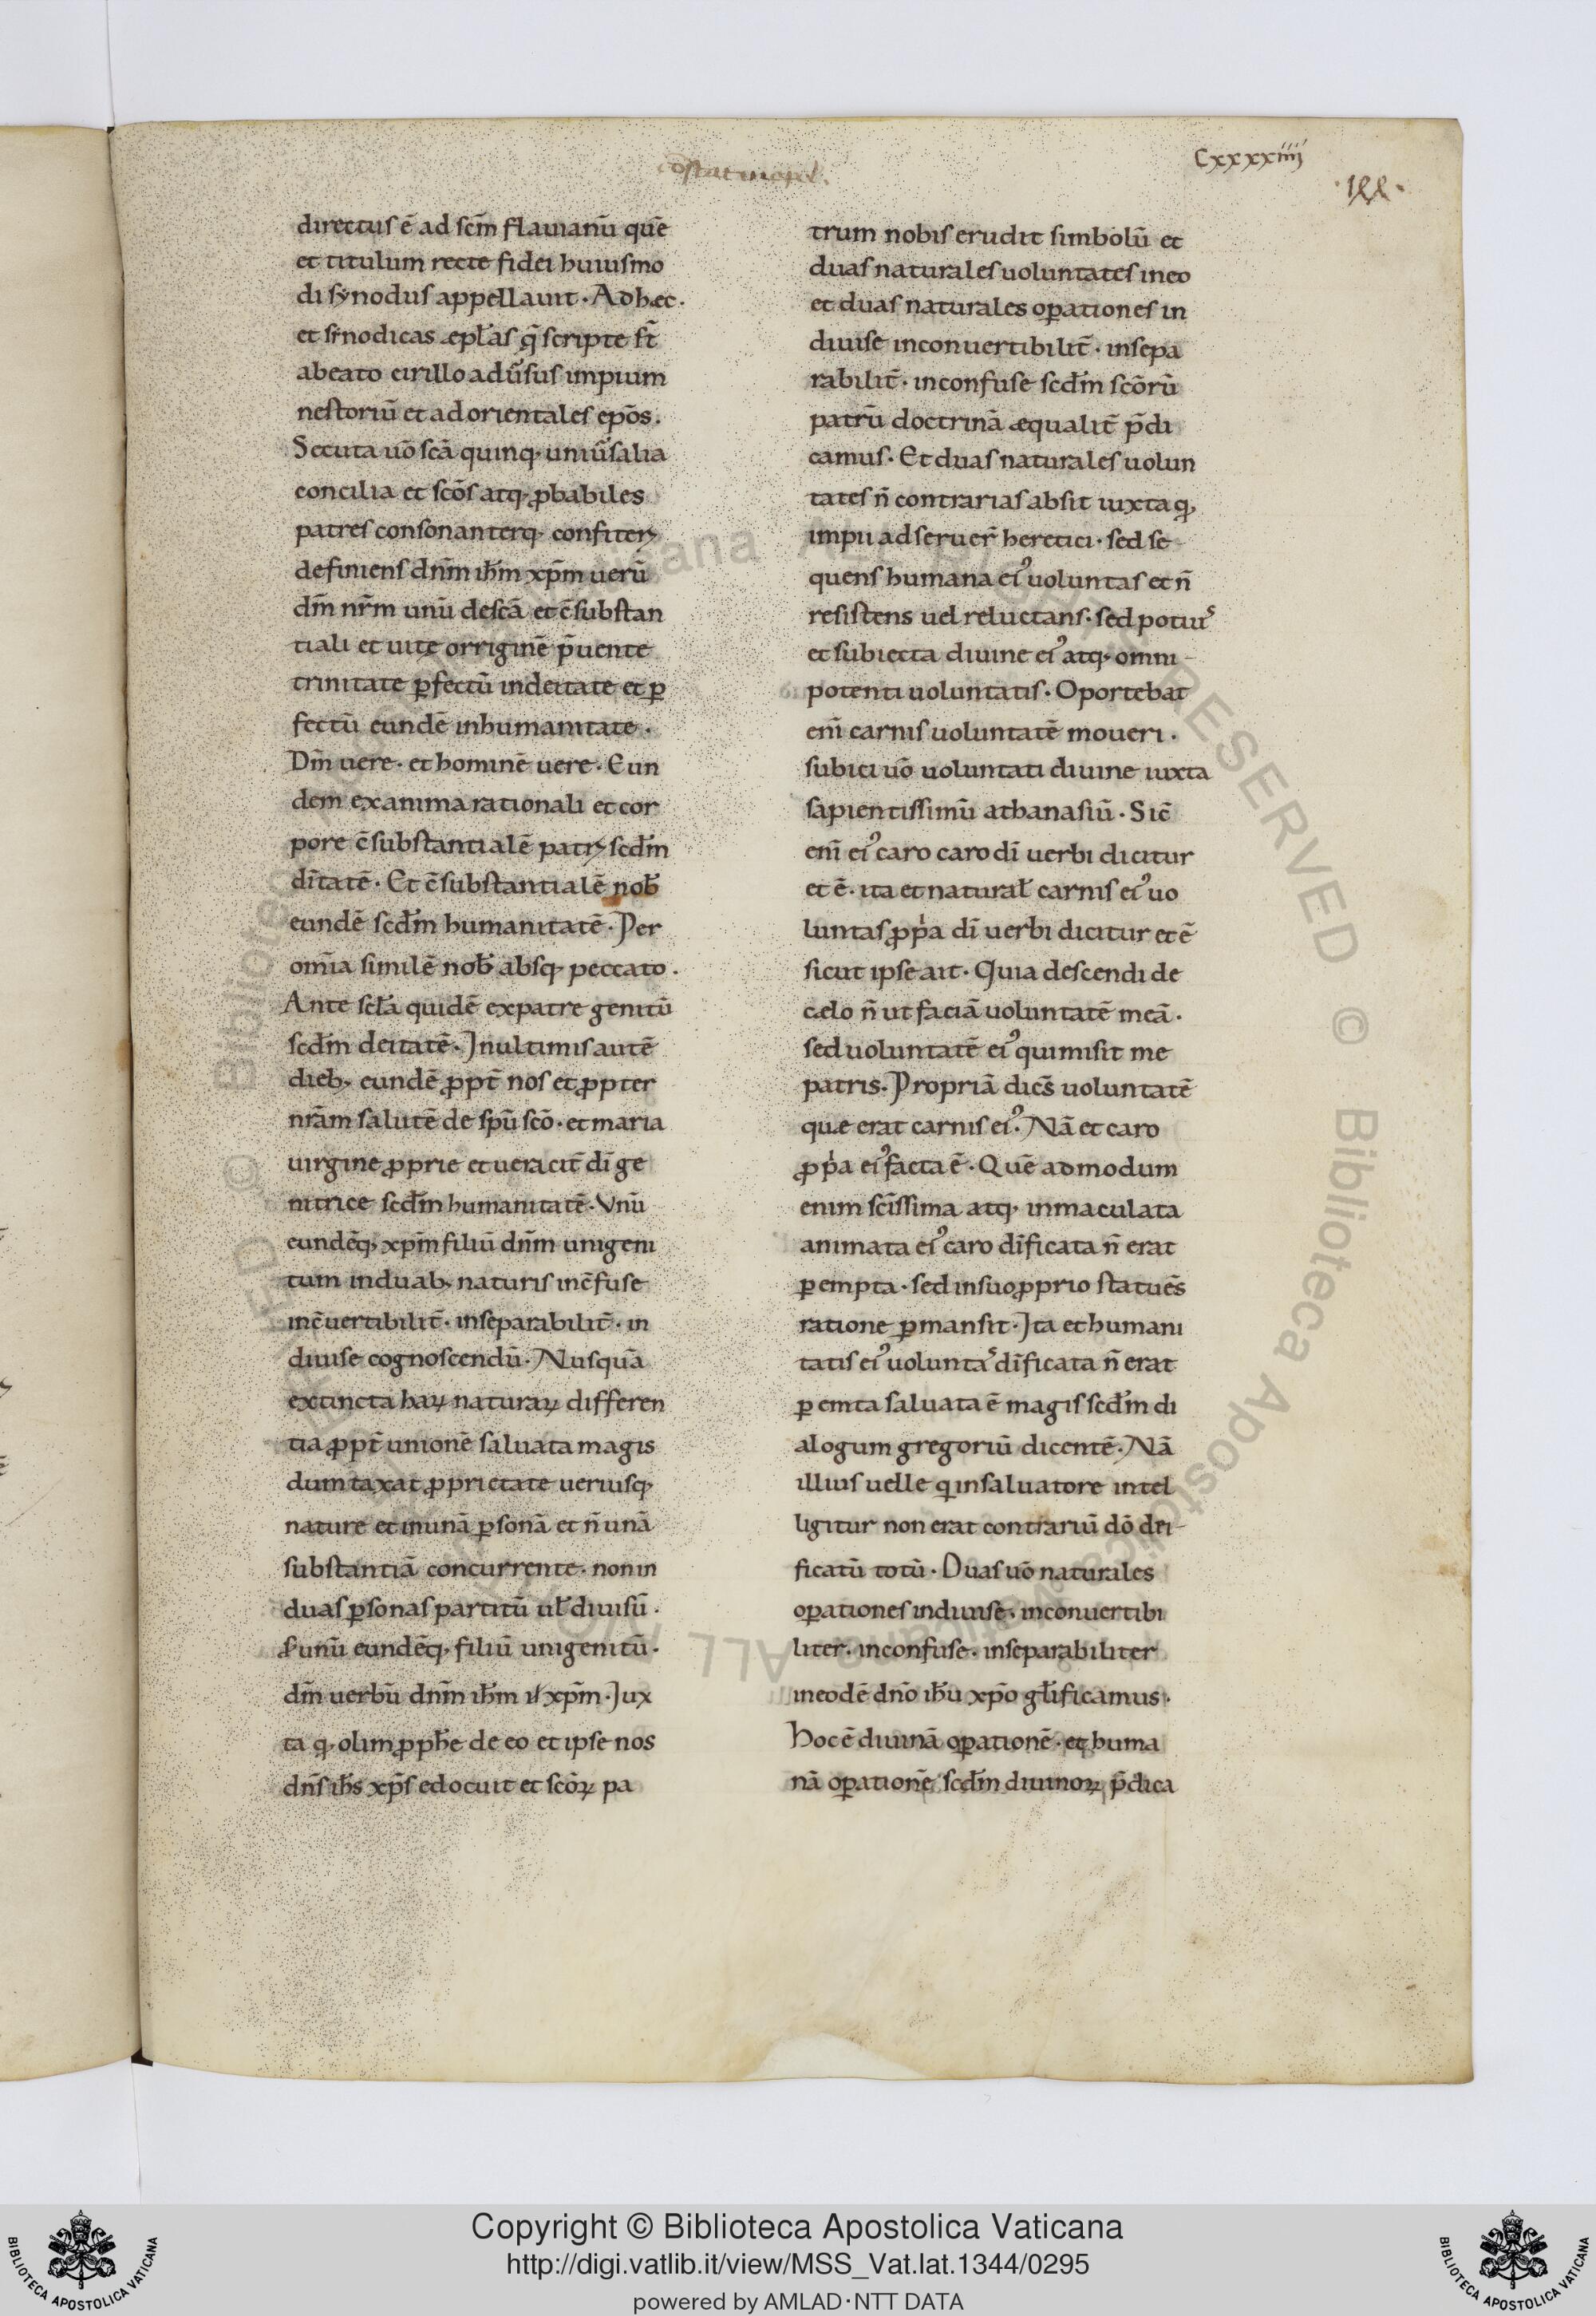 co̅stantinopol.
Cxxxxiiii
·1ꝭꝭ·
directus e̅ ad sc̅m flauianu̅ que̅
et titulum recte fidei huiusmo
di synodus appellauit · Ad hæc ·
et synodicas æpl̅as q̅ scripte st̅
abeato cirillo adu̅sus impium
nestoriu̅ et ad orientales ep̅os.
Secuta uo̅ sc̅a quinq· uniu̅salia
concilia et sc̅os atq· ꝓbabiles
patres consonanterq· confiteꝶ
definiens dn̅m ih̅m xp̅m ueru̅
dm̅ nr̅m unu̅ desc̅a et c̅substan
tiali et uitę orrigine̅ p̅uente
trinitate ꝑfectu̅ indeitate et ꝑ
fectu̅ eunde̅ inhumanitate ·
Dm̅ uere · et homine̅ uere · Eun
dem exanima rationali et cor
pore c̅substantiale̅ patꝶ scd̅m
di̅tate̅ · Et c̅substantiale̅ nob̅
eunde̅ scd̅m humanitate̅ · Per
om̅ia simile̅ nob̅ absq· peccato ·
Ante scl̅a quide̅ expatre genitu̅
scd̅m deitate̅ · Jnultimis aute̅
dieb; eunde̅ ꝓpt̅ nos et ꝓpter
nr̅am salute̅ de sp̅u sc̅o · et maria
uirgine ꝓprie et ueracit̅ di̅ ge
nitrice scd̅m humanitate̅ · Vnu̅
eunde̅q; xp̅m filiu̅ dn̅m unigeni
tum induab; naturis inc̅fuse
inc̅uertibilit̅ · inseparabilit̅ · in
diuise cognoscendu̅ · Nusqua̅
extincta haꝝ naturaꝝ differen
tia ꝓpt̅ unione̅ saluata magis
dumtaxat ꝓprietate ueriusq·
nature et inuna̅ ꝑsona̅ et n̅ una̅
substantia̅ concurrente · non in
duas ꝑsonas partitu̅ ul̅ diuisu̅ ·
s̅ unu̅ eunde̅q· filiu̅ unigenitu̅ ·
dm̅ uerbu̅ dn̅m ih̅m xp̅m · Jux
ta q· olim ꝓph̅e de eo et ipse nos
dn̅s ih̅s xp̅s edocuit et sc̅oꝝ pa
trum nobis erudit simbolu̅ et
duas naturales uoluntates ineo
et duas naturales oꝑationes in
diuise inconuertibilit̅ · insepa
rabilit̅ · inconfuse scd̅m sc̅oru̅
patru̅ doctrina̅ æqualit̅ p̅di
camus · Et duas naturales uolun
tates n̅ contrarias absit iuxta q;
impii adseruer̅ heretici · sed se
quens humana ei᾽ uoluntas et n̅
resistens uel reluctans · sed potiuˢ
et subiecta diuine ei᾽ atq· omni-
potenti uoluntatis · Oportebat
eni̅ carnis uoluntate̅ moueri ·
subici uo̅ uoluntati diuine iuxta
sapientissimu̅ athanasiu̅ · Sic̅
eni̅ ei᾽ caro caro di̅ uerbi dicitur
et e̅ · ita et natural̅ carnis ei᾽ uo
luntas ꝓpͥa di̅ uerbi dicitur et e̅
sicut ipse ait · Quia descendi de
cælo n̅ ut facia̅ uoluntate̅ mea̅ ·
sed uoluntate̅ ei᾽ qui misit me
patris · Propria̅ dice̅s uoluntate̅
quæ erat carnis ei᾽ · Na̅ et caro
ꝓpͥa ei᾽ facta e̅ · Que̅ admodum
enim sc̅issima atq· inmaculata
animata ei᾽ caro di̅ficata n̅ erat
ꝑempta · sed insuo ꝓprio statue̅s
ratione ꝑmansit · Jta et humani
tatis ei᾽ uoluntaˢ di̅ficata n̅ erat
ꝑemta saluata e̅ magis scd̅m di
alogum gregoriu̅ dicente̅ · Na̅
illius uelle q insaluatore intel
ligitur non erat contrariu̅ do̅ dei-
ficatu̅ totu̅ · Duas uo̅ naturales
oꝑationes indiuise · inconuertibi
liter · inconfuse · inseparabiliter
ineode̅ dn̅o ih̅u xp̅o gl̅ificamus ·
Hoc e̅ diuina̅ oꝑatione̅ · et huma
na̅ oꝑatione̅ scd̅m diuinoꝝ p̅dica
Copyright © Biblioteca Apostolica Vaticana
http://digi.vatlib.it/view/MSS_Vat.lat.1344/0295
powered by AMLAD·NTT DATA
BIBLIOTECA APOSTOLICA VATICANA
BIBLIOTECA APOSTOLICA VATICANA